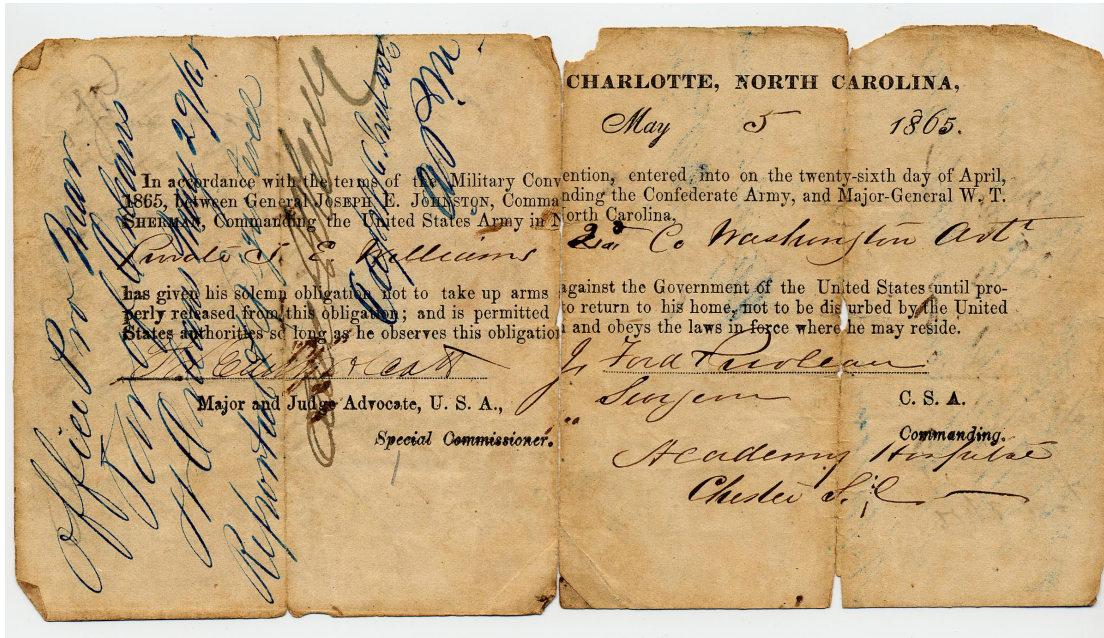 CHARLOTTE, NORTH CAROLINA,
May 5 1865.
In accordance with the terms of the Military Convention, entered, into on the twenty-sixth day of April,
1865, between General JOSEPH E. JOHNSTON, Commanding the Confederate Army, and Major-General W. T.
SHERMAN, Commanding the United States Army in North Carolina,
Private S. E. Williams 2d Co Washington Arty
has given his solemn obligation not to take up arms against the Government of the United States until pro-
perly released from this obligation; and is permitted to return to his home, not to be disurbed by the United
States authorities so long as he observes this obligation and obeys the laws in force where he may reside.
J. Ford Prioleau
Major and Judge Advocate, U. S. A., Surgeon C. S. A.
Special Commissioner. Commanding.
Academy Hospital
Chester S. C
Office Pro Mar
New Orleans
May 29/65
Reported
Capt